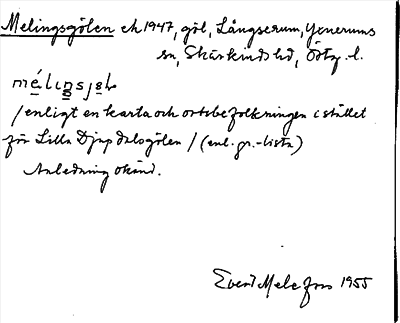 Melingsgölen ek 1947, göl, Långserum, Yxnerums
sn, Skärkinds hd, Östg. l.
mélıŋsjɵ̨l-
/enligt en karta och ortsbefolkningen i stället
för Lilla Djupdalsgölen / (enl. gr.-lista)
Anledning okänd.
Evert Melefors 1955